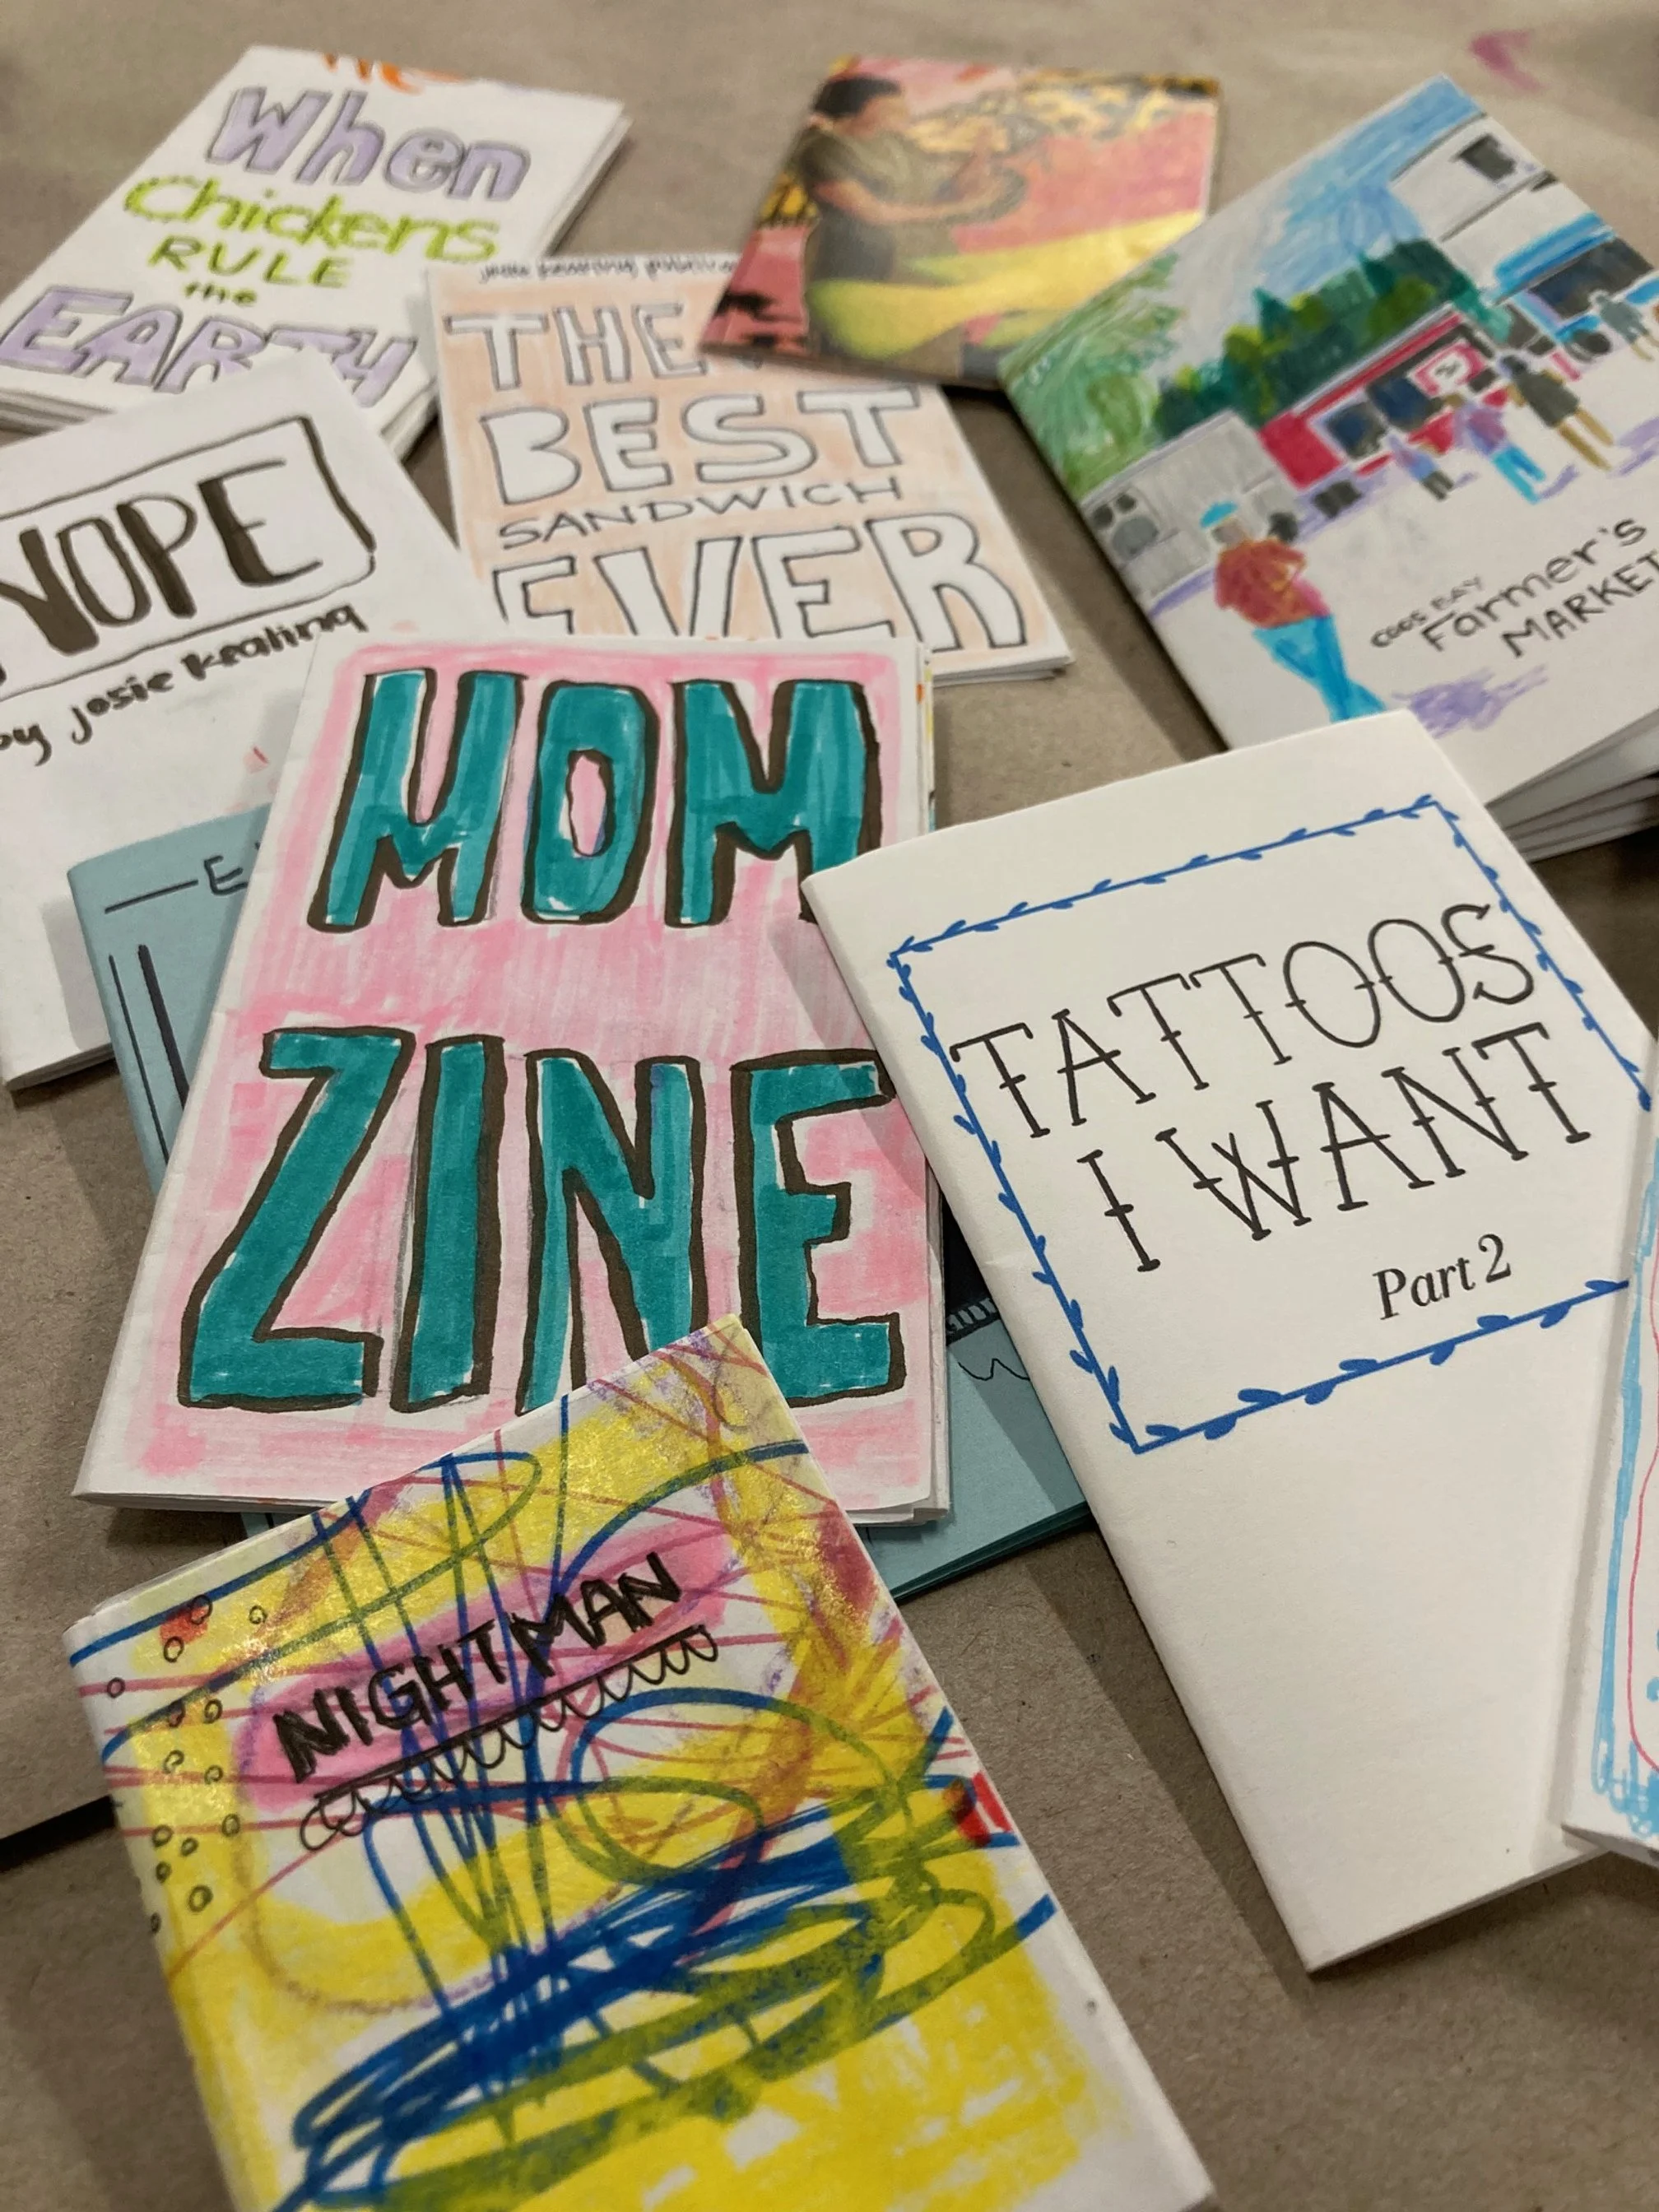 When
Chickens
RULE
the
EARTH
THE
BEST
SANDWICH
EVER
COOS BAY
Farmer's
MARKET
NOPE
by Josie Kealing
MOM
ZINE
TATTOOS
I WANT
Part 2
NIGHTMAN